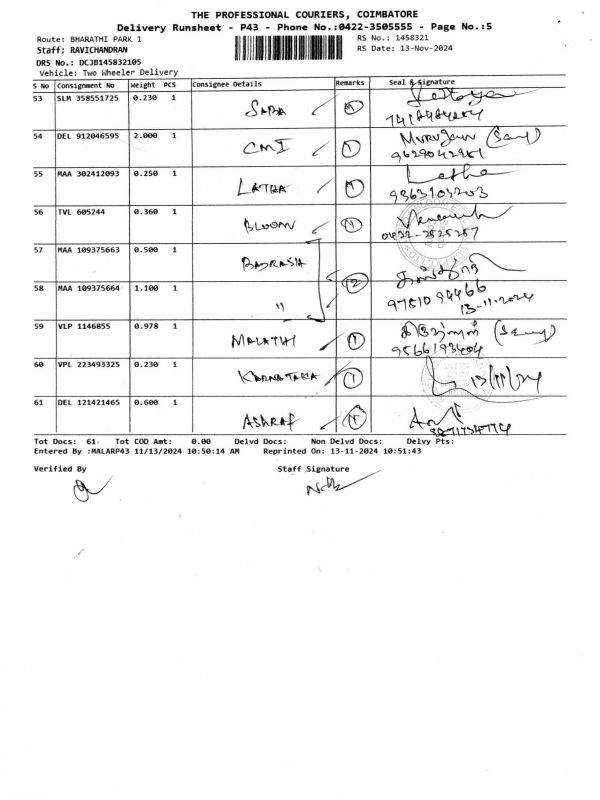 THE PROFESSIONAL COURIERS, COIMBATORE
Delivery Runsheet - P43 - Phone No.:0422-3505555 - Page No.:5
Route: BHARATHI PARK 1 RS No.: 1458321
Staff: RAVICHANDRAN RS Date: 13-Nov-2024
DRS No.: DCJB145832105
Vehicle: Two Wheeler Delivery
S No Consignment No Weight PCS Consignee Details Remarks Seal & Signature
53 SLM 358551725 0.230 1 SABA 1
54 DEL 912046595 2.000 1 CMI 1 Murugan
9629042961
55 MAA 302412093 0.250 1 LATHA 1 Latha
9363103203
56 TVL 605244 0.360 1 BLOOM 1
0422-2525257
57 MAA 109375663 0.500 1 BADRASIA
2
58 MAA 109375664 1.100 1 "
13-11-2024
59 VLP 1146855 0.978 1 MALATHI 1
9566193604
60 VPL 223493325 0.230 1 KARNATAKA 1 13/11/24
61 DEL 121421465 0.600 1 ASHRAF 1
Tot Docs: 61 Tot COD Amt: 0.00 Delvd Docs: Non Delvd Docs: Delvy Pts:
Entered By :MALARP43 11/13/2024 10:50:14 AM Reprinted On: 13-11-2024 10:51:43
Verified By Staff Signature